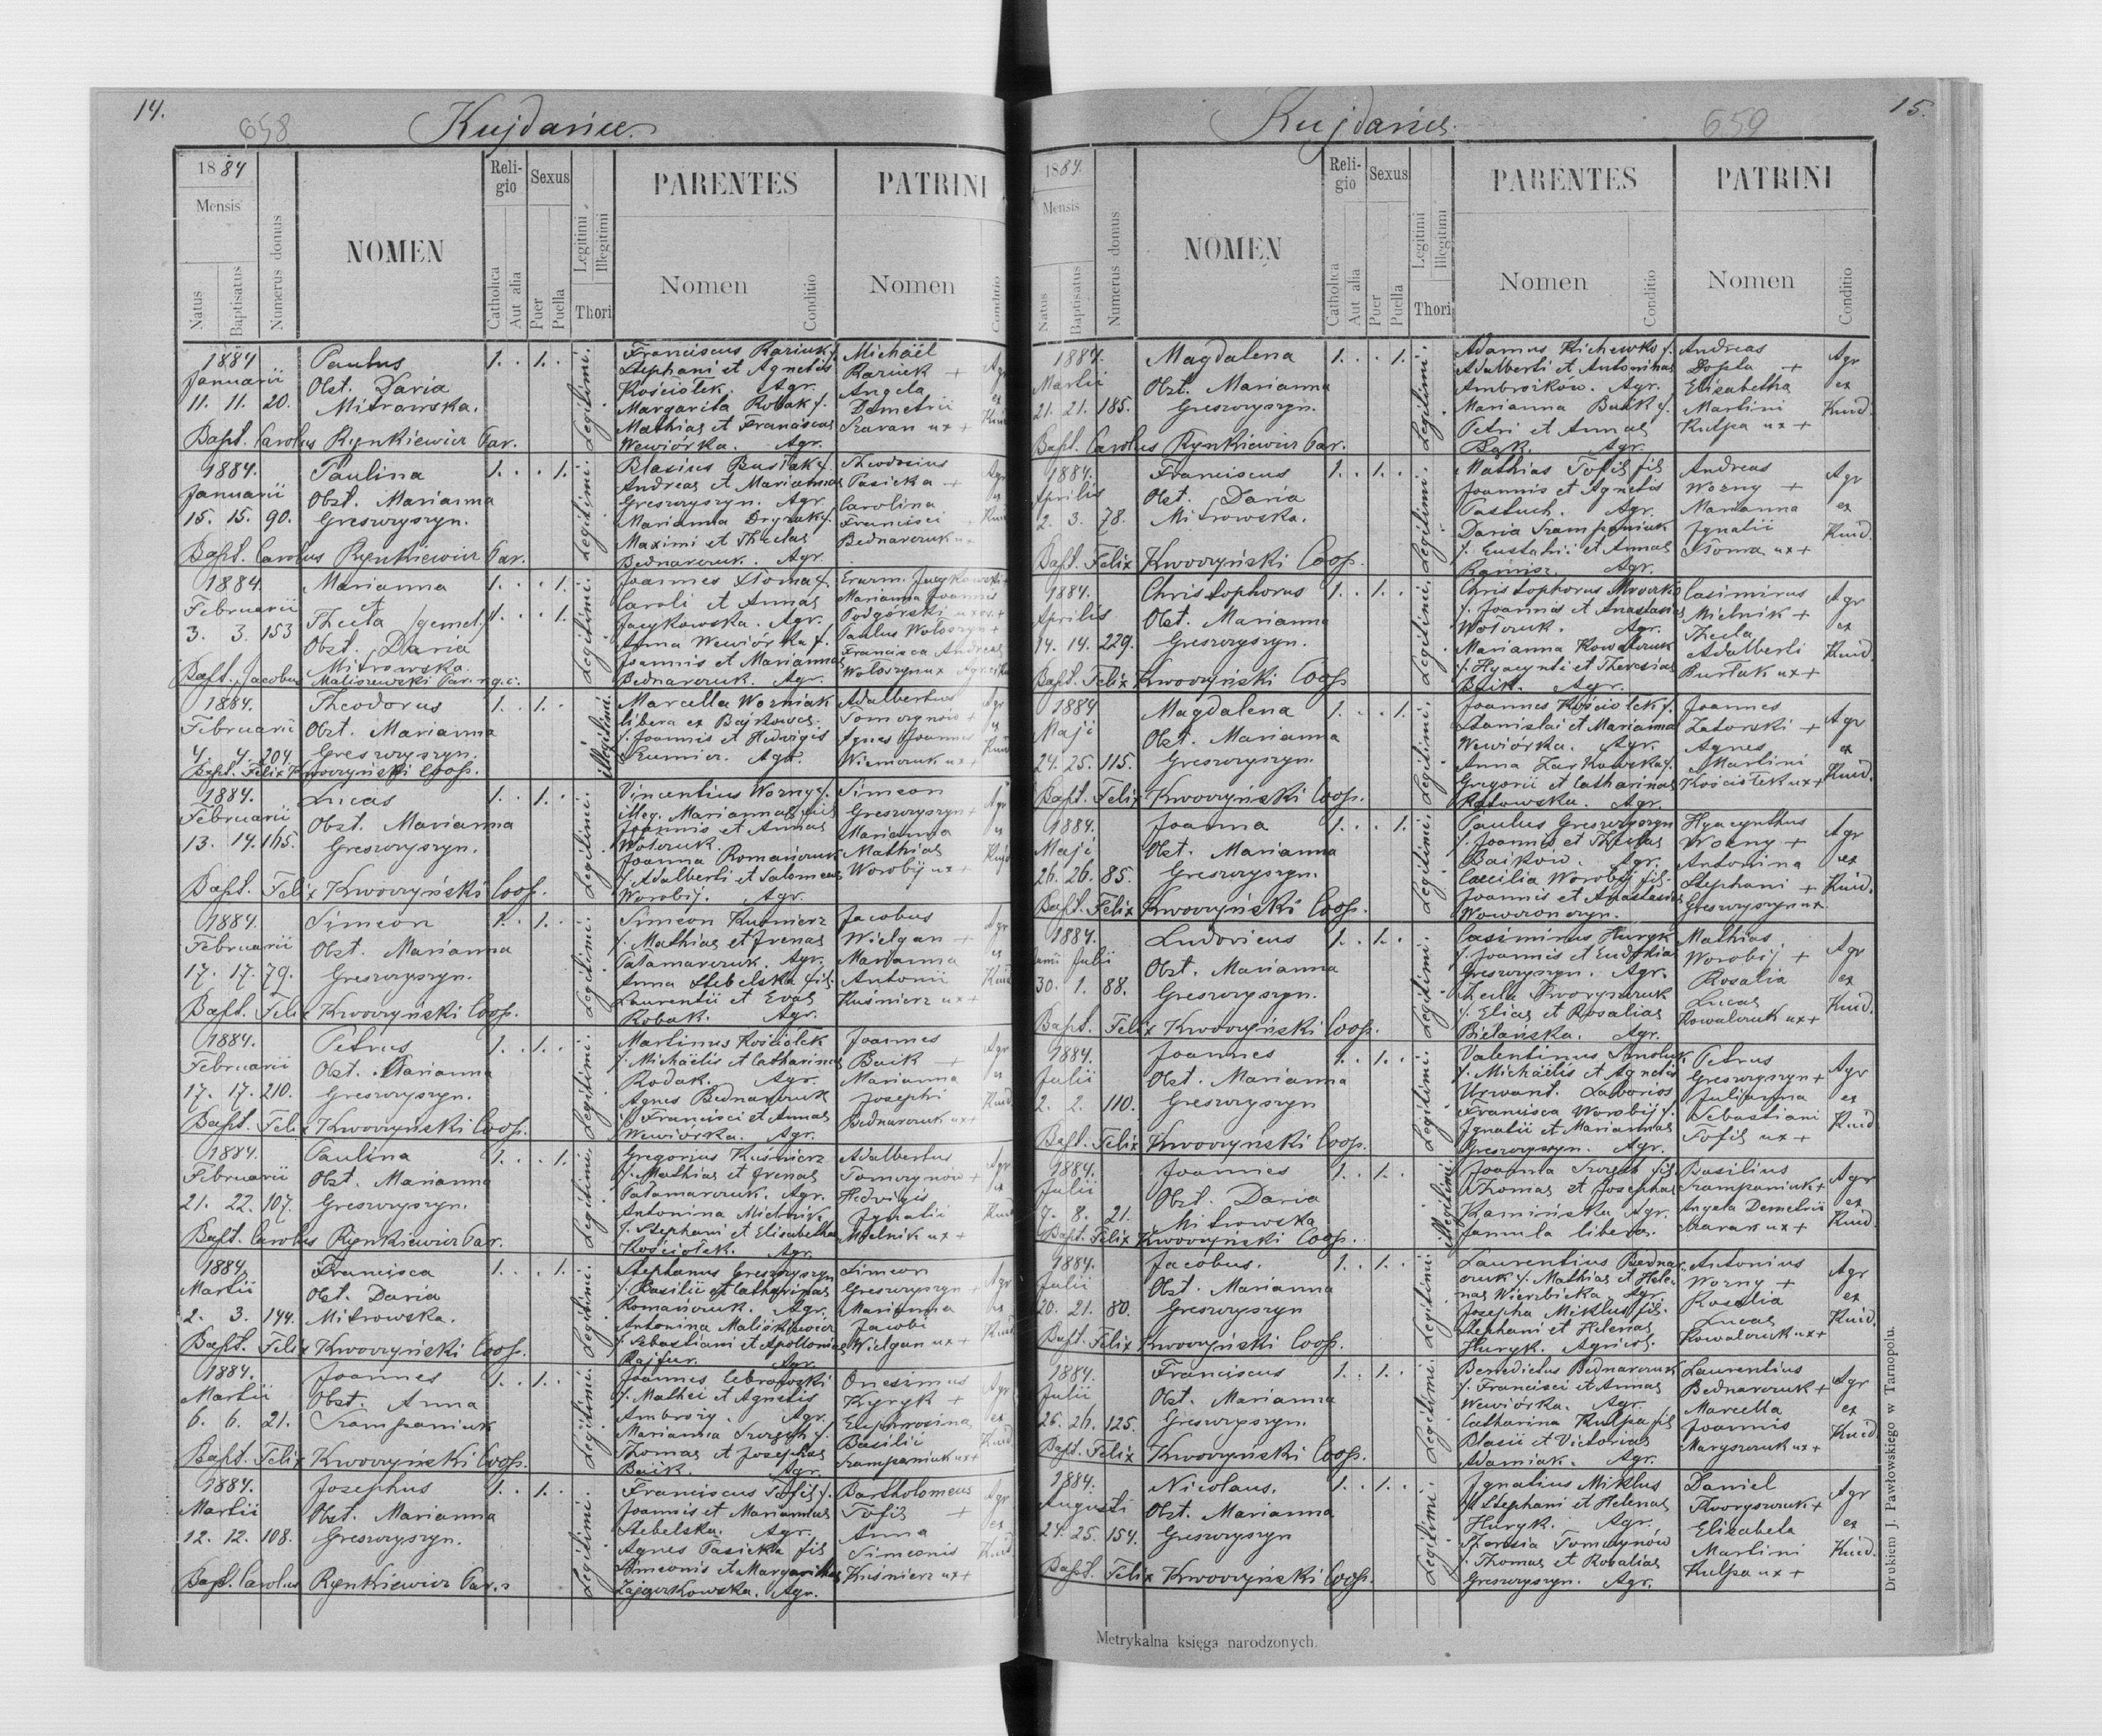 14.
658
Kujdańce.
1884
Mensis
Natus
Baptisatus
Numerus domus
NOMEN
Religio
Catholica
Aut alia
Sexus
Puer
Puella
Legitimi
Illegitimi
Thori
PARENTES
Nomen
Conditio
PATRINI
Nomen
Conditio
1884
Januarii
11. 11. 20.
Paulus
Obst. Daria
Mitrowska.
1. 1.
Legitimi.
Franciscus
Stephani et Agnetis
Kościółek. Agr.
Margarita Robak f.
Mathias et Francisca
Wewiórka. Agr.
Michaël
+
Angela
Demetrii
ux +
Bapt. Carolus Rynkiewicz Par.
1884.
Januarii
15. 15. 90.
Paulina
Obst. Marianna
Greszczyszyn.
1. 1.
Legitimi.
Blasius
Andreas et Mariannas
Greszczyszyn. Agr
Marianna
Maximi et Theclas
Bednarczuk. Agr.
Theodosius
Pasieka +
Carolina
Francisci
Bednarczuk ux
Bapt. Carolus Rynkiewicz Par.
1884.
Februarii
3. 3. 153
Marianna
et
Thecla /gemel./
Obst. Daria
Mitrowska.
1. 1.
1. 1.
Legitimi.
Joannes Słoma f.
Caroli et Annas
Jacykowska. Agr.
Anna Wewiórka f.
Joannis et Mariannas
Bednarczuk. Agr.
Marianna Joannis
Podgórski
Paulus
Francisca Andreas
Bapt. Jacobus Maliszewski Par. r.g.c.
1884.
Februarii
4. 4. 204.
Theodorus
Obst. Marianna
Greszczyszyn.
1. 1.
illegitimi.
Marcella Wozniak
libera ex
f. Joannis et Hedvigis
Agr.
Adalbertus
Tomczynów +
Agnes Joannis
ux +
Bapt. Felix Kwoczyński Coop.
1884.
Februarii
13. 14. 165.
Lucas
Obst. Marianna
Greszczyszyn.
1. 1.
Legitimi.
Vincentius Wozny f.
illeg. Mariannas fil.
Joannis et Annas
Wołczuk.
Joanna Romańczuk
f. Adalberti et Salomeas
Worobij. Agr.
Simeon
Greszczyszyn +
Marianna
Mathias
Worobij ux +
Bapt. Felix Kwoczyński Coop.
1884.
Februarii
17. 17. 79.
Simeon
Obst. Marianna
Greszczyszyn.
1. 1.
Legitimi.
Simeon Kuśnierz
f. Mathias et Irenas
Pałamarczuk. Agr.
Anna Stebelska fil.
Laurentii et Evas
Robak. Agr.
Jacobus
Wielgan +
Marianna
Antonii
Kuśnierz ux +
Bapt. Felix Kwoczyński Coop.
1884.
Februarii
17. 17. 210.
Petrus
Obst. Marianna
Greszczyszyn.
1. 1.
Legitimi.
Martinus Kościółek
f. Michaëlis et Catharinas
Rodak. Agr.
Agnes Bednarczuk
f. Francisci et Annas
Wewiórka. Agr.
Joannes
Baik +
Marianna
Josephi
Bednarczuk ux +
Bapt. Felix Kwoczyński Coop.
1884.
Februarii
21. 22. 107.
Paulina
Obst. Marianna
Greszczyszyn.
1. 1.
Legitimi.
Gregorius Kuśnierz
f. Mathias et Irenas
Pałamarczuk. Agr.
Antonina Mielnik
f. Stephani et Elisabethas
Kościółek. Agr.
Adalbertus
Tomczynów +
Hedvigis
Ignatii
Mielnik ux +
Bapt. Carolus Rynkiewicz Par.
1884.
Martii
2. 3. 144.
Francisca
Obst. Daria
Mitrowska.
1. 1.
Legitimi.
Stephanus Greszczyszyn
f. Basilii et Catharinas
Romańczuk. Agr.
Antonina
f. Sebastiani et Apollonias
Rajfur. Agr.
Simeon
Greszczyszyn +
Marianna
Jacobi
Wielgan ux +
Bapt. Felix Kwoczyński Coop.
1884.
Martii
6. 6. 21.
Joannes
Obst. Anna
Szampaniuk
1. 1.
Legitimi.
Joannes
f. Mathei et Agnetis
Ambrozy. Agr.
Marianna
Thomas et Josephas
Baik. Agr.
Onesimus
Kyryk +
Euphrosina
Basilii
Szampaniuk ux +
Bapt. Felix Kwoczyński Coop.
1884.
Martii
12. 12. 108.
Josephus
Obst. Marianna
Greszczyszyn.
1. 1.
Legitimi.
Franciscus Tofil f.
Joannis et Mariannas
Stebelska. Agr.
Agnes Pasieka fil
Simeonis et Margarithas
Agr.
Bartholomeus
Tofil +
Anna
Simeonis
Kuśnierz ux +
Bapt. Carolus Rynkiewicz Par.
15.
659
Kujdańce.
1884.
Mensis
Natus
Baptisatus
Numerus domus
NOMEN
Religio
Catholica
Aut alia
Sexus
Puer
Puella
Legitimi
Illegitimi
Thori
PARENTES
Nomen
Conditio
PATRINI
Nomen
Conditio
1884.
Martii
21. 21. 185.
Magdalena
Obst. Marianna
Greszczyszyn.
1. 1.
Legitimi.
Adamus
Adalberti et Antoninas
Ambrozików. Agr.
Marianna
Petri et Annas
Bąk. Agr.
Andreas
Dopta +
Elisabetha
Martini
Kulpa ux +
Agr
ex
Kuid.
Bapt. Carolus Rynkiewicz Par.
1884.
Aprilis
2. 3. 78.
Franciscus
Obst. Daria
Mitrowska.
1. 1.
Legitimi.
Mathias Tofil fil
Joannis et Agnetis
Pastuch. Agr.
Daria Szampaniuk
f. Eustahii et Annas
Agr.
Andreas
Wozny +
Marianna
Ignatii
Słoma ux +
Agr
ex
Kuid.
Bapt. Felix Kwoczyński Coop.
1884.
Aprilis
14. 14. 229.
Christophorus
Obst. Marianna
Greszczyszyn.
1. 1.
Legitimi.
Christophorus
f. Joannis et Anastasias
Wołczuk. Agr.
Marianna Kowalczuk
f. Hyacynti et Theresias
Baik. Agr.
Casimirus
Mielnik +
Thecla
Adalberti
Burłak ux +
Agr
ex
Kuid.
Bapt. Felix Kwoczyński Coop
1884
Maji
24. 25. 115.
Magdalena
Obst. Marianna
Greszczyszyn.
1. 1.
Legitimi.
Joannes Kościółek f.
Stanislai et Marianna
Wewiórka. Agr.
Anna
Gregorii et Catharinas
Agr.
Joannes
Zatorski +
Agnes
Martini
Kościółek ux +
Agr
ex
Kuid.
Bapt. Felix Kwoczyński Coop.
1884.
Maji
26. 26. 85.
Joanna
Obst. Marianna
Greszczyszyn.
1. 1.
Legitimi.
Paulus Greszczyszyn
f. Joannis et Theclas
Baików. Agr.
Caecilia Worobij fil.
Joannis et Anastasias
Hyacynthus
Wozny +
Antonina
Stephani +
Greszczyszyn ux.
Agr
ex
Kuid.
Bapt. Felix Kwoczyński Coop.
1884.
Junii Julii
30. 1. 88.
Ludovicus
Obst. Marianna
Greszczyszyn.
1. 1.
Legitimi.
Casimirus Huryk
f. Joannis et Eudokias
Greszczyszyn. Agr.
Thecla
f. Elias et Rosalias
Bielańska. Agr.
Mathias
Worobij +
Rosalia
Lucas
Kowalczuk ux +
Agr
ex
Kuid.
Bapt. Felix Kwoczyński Coop.
1884.
Julii
2. 2. 110.
Joannes
Obst. Marianna
Greszczyszyn
1. 1.
Legitimi.
Valentinus
f. Michaëlis et Agnetis
Urwant. Laborios
Francisca Worobij f.
Ignatii et Mariannas
Greszczyszyn. Agr.
Petrus
Greszczyszyn +
Julianna
Sebastiani
Tofil ux +
Agr
ex
Kuid
Bapt. Felix Kwoczyński Coop.
1884.
Julii
7. 8. 21.
Joannes
Obst. Daria
Mitrowska
1. 1.
illegitimi.
Joanna
Thomas et Josephas
Kamińska Agr.
famula libera.
Basilius
Szampaniuk +
Angela Demetrii
ux +
Agr
ex
Kuid.
Bapt. Felix Kwoczyński Coop.
1884.
Julii
20. 21. 80.
Jacobus.
Obst. Marianna
Greszczyszyn
1. 1.
Legitimi.
Laurentius Bednarczuk f. Mathias et Helenas
Wierzbicka. Agr.
Josepha Miklus fil.
Stephani et Helenas
Huryk. Agricol.
Antonius
Wozny +
Rosalia
Lucas
Kowalczuk ux +
Agr
ex
Kuid.
Bapt. Felix Kwoczyński Coop.
1884.
Julii
26. 26. 125.
Franciscus
Obst. Marianna
Greszczyszyn.
1. 1.
Legitimi.
Benedictus Bednarczuk
f. Francisci et Annas
Wewiórka. Agr.
Catharina Kulpa fil
Blasii et Victorias
Adamiak. Agr.
Laurentius
Bednarczuk +
Marcella
Joannis
Maryszczuk ux +
Agr
ex
Kuid
Bapt. Felix Kwoczyński Coop.
1884.
Augusti
24. 25. 154.
Nicolaus.
Obst. Marianna
Greszczyszyn
1. 1.
Legitimi.
Ignatius Miklus
f. Stephani et Helenas
Huryk. Agr.
Theresia Tomczynów
f. Thomas et Rosalias
Greszczyszyn. Agr.
Daniel
+
Elisabeta
Martini
Kulpa ux +
Agr
ex
Kuid.
Bapt. Felix Kwoczyński Coop.
Metrykalna księga narodzonych.
Drukiem J. Pawłowskiego w Tarnopolu.